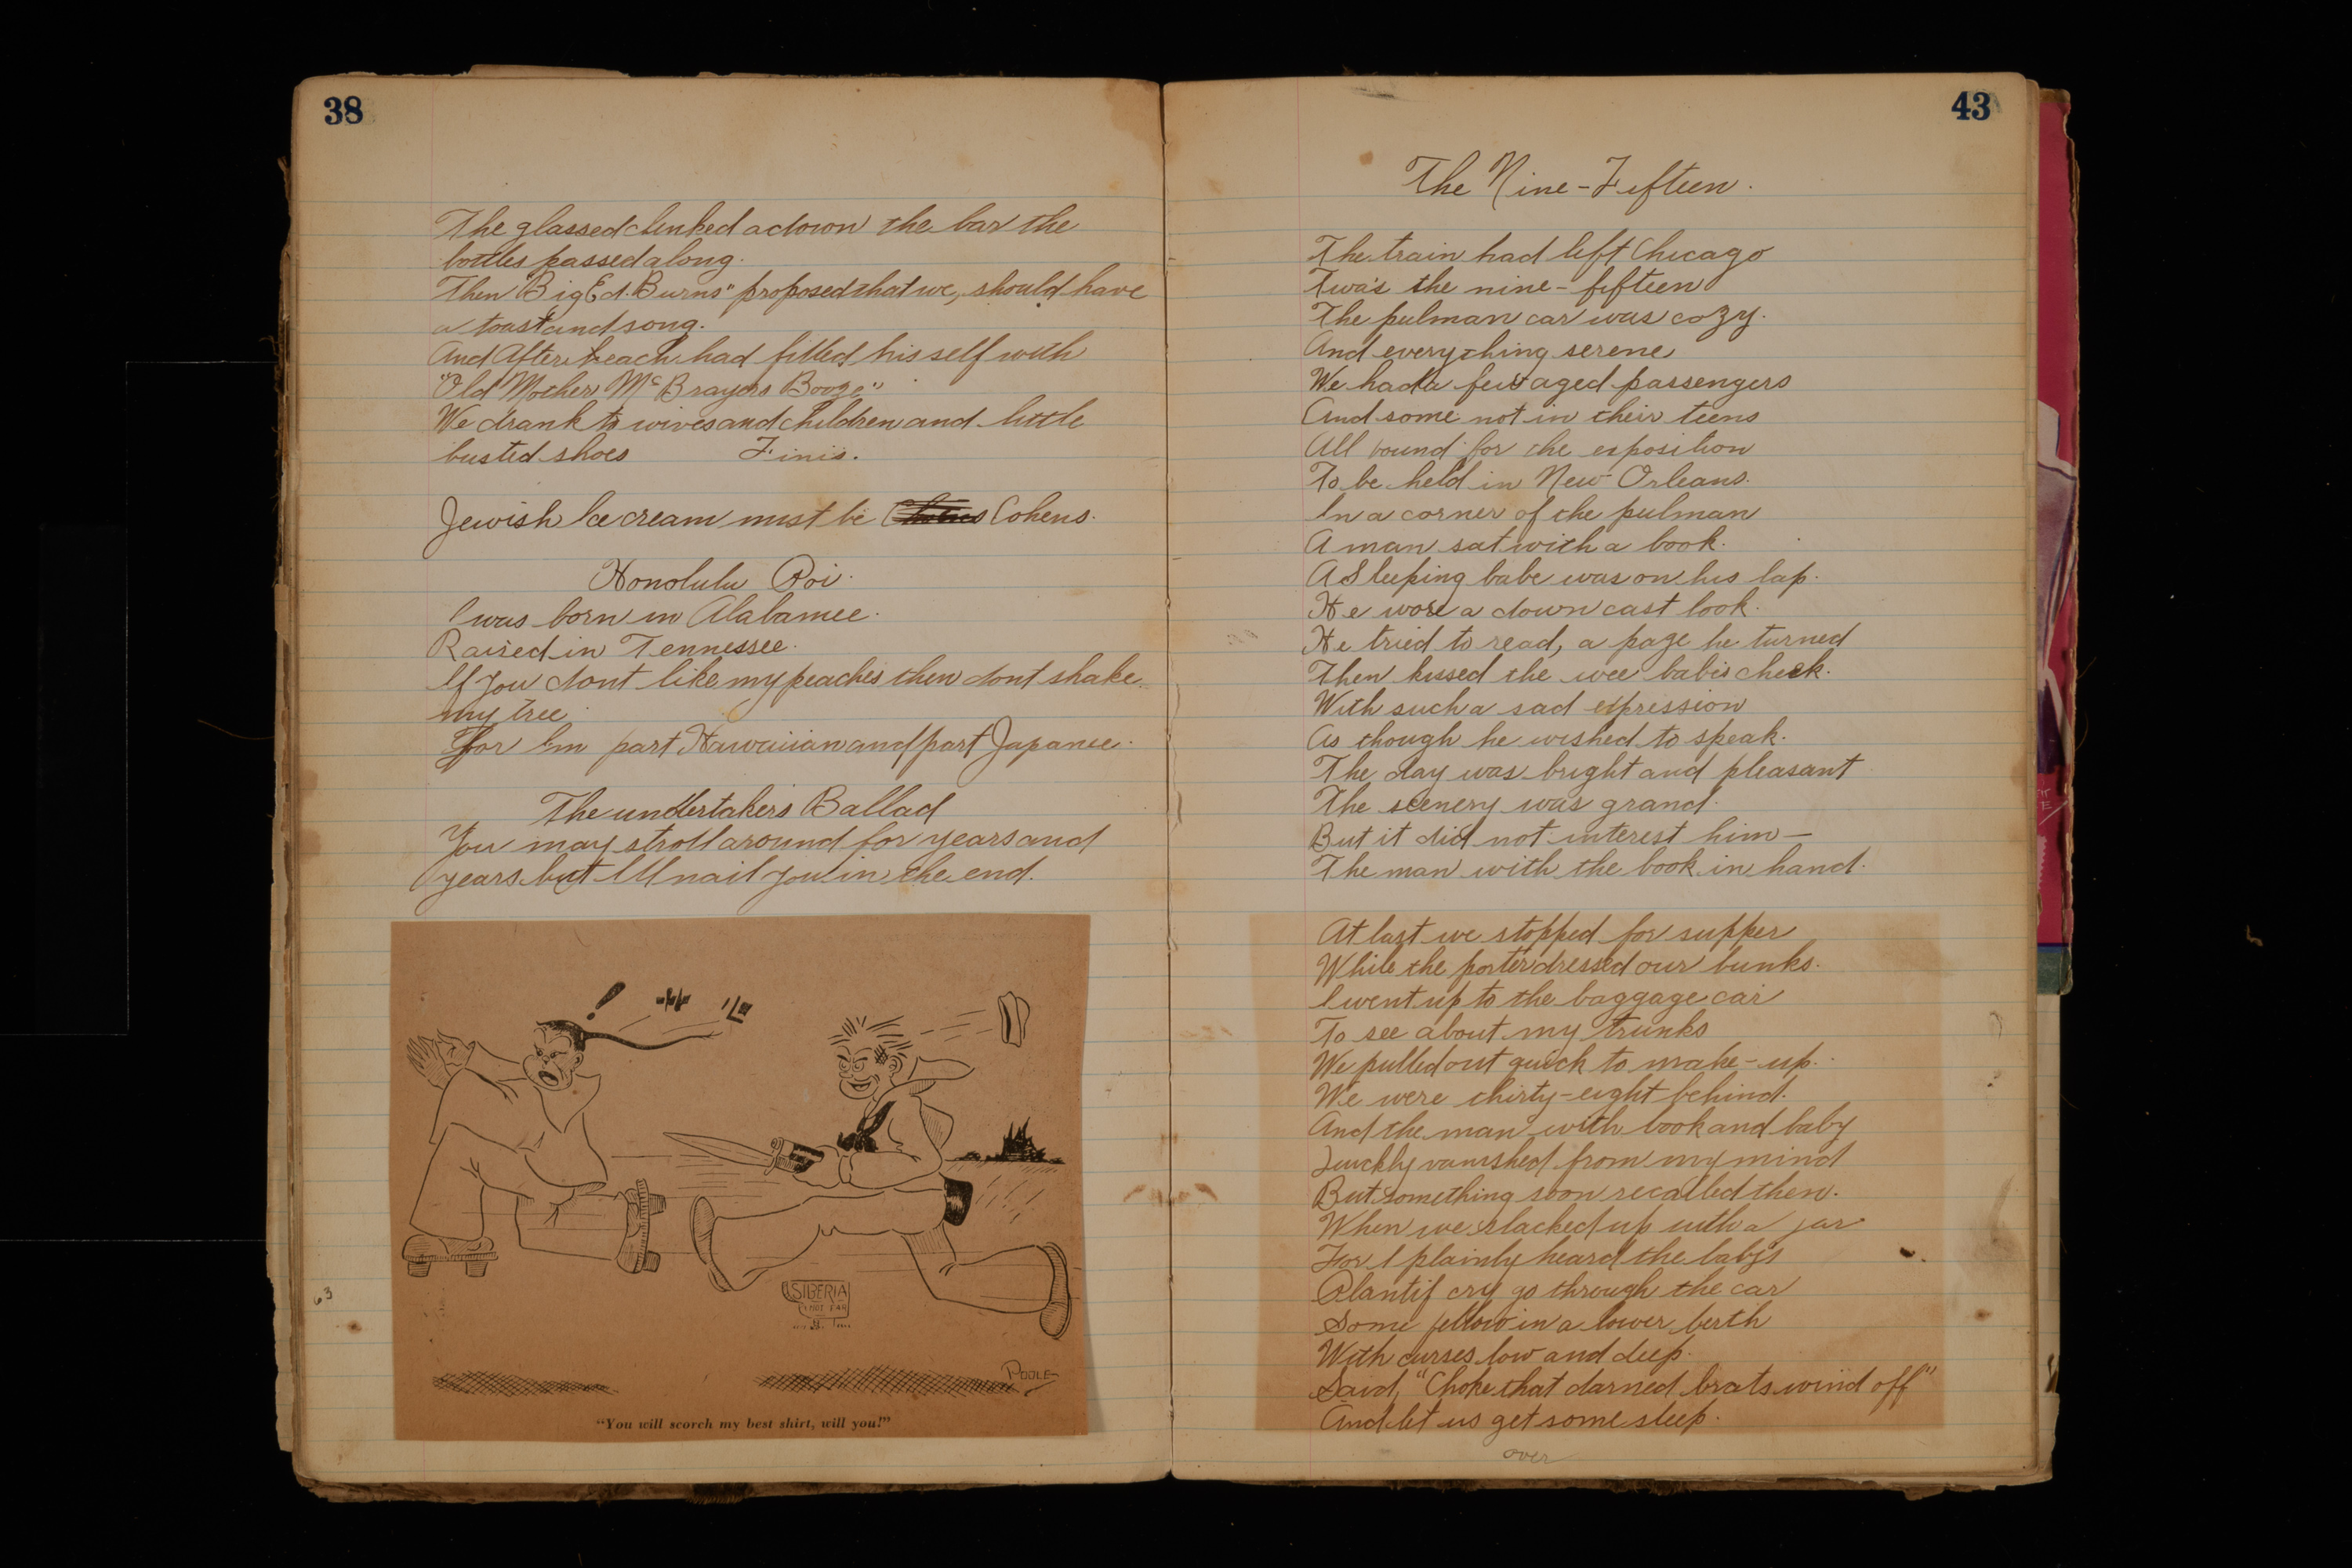 38
The glassed clinked adown the bar the
bottles passed along.
Then "Big Ed. Burns" proposed that we, should have
a toast and song.
And After each had filled his self with
"Old Mother McBrayers Booze"
We drank to wives and children and little
busted shoes Finis.
Jewish Ice cream must be Cohens.
Honolulu Poi.
I was born in Alabamee.
Raised in Tennessee.
If you dont like my peaches then dont shake
my tree.
For Im part Hawaiian and part Japanee.
The undertakers Ballad
You may stroll around for years and
years but Ill nail you in the end.
!
SIBERIA
NOT FAR
POOLE
"You will scorch my best shirt, will you!"
63
43
The Nine-Fifteen.
The train had left Chicago
Twas the nine-fifteen
The pulman car was cozy.
And everything serene
We had a few aged passengers
And some not in their teens
All bound for the exposition
To be held in New Orleans.
In a corner of the pulman
A man sat with a book.
A Sleeping babe was on his lap.
He wore a down cast look.
He tried to read, a page he turned
Then kissed the wee babis cheek.
With such a sad expression
As though he wished to speak.
The day was bright and pleasant
The scenery was grand.
But it did not interest him—
The man with the book in hand.
At last we stopped for supper
While the porter dressed our bunks.
I went up to the baggage car
To see about my trunks
We pulled out quick to make-up.
We were thirty-eight behind.
And the man with book and baby
Quickly vanished from my mind
But something soon recalled them.
When we slacked up with a jar
For I plainly heard the baby's
Plantif cry go through the car
Some fellow in a lower berth
With curses low and deep.
Said, "Choke that darned brats wind off"
And let us get some sleep.
over